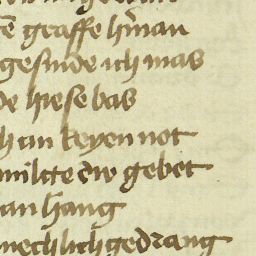 graffe
gesinde ich was
de hiese bas
h an keyen not
milite gebet
an hang
nechlich gedrang